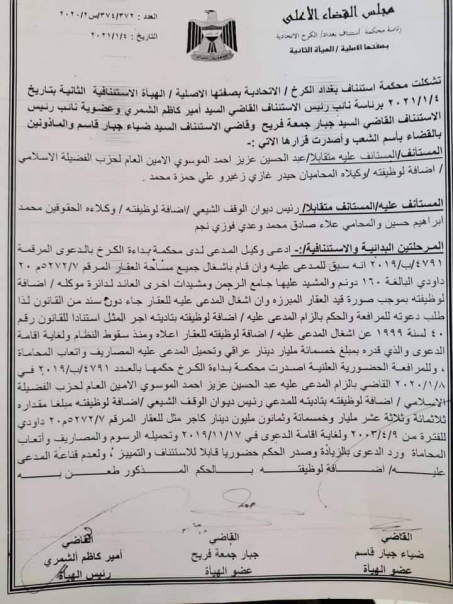 مجلس القضاء الأعلى
رئاسة محكمة استئناف بغداد/ الكرخ الاتحادية
بصفتها الاصلية / الهيأة الثانية
العدد : ٣٧٢/٣٧٤/س/٢٠٢٠
التاريخ : ٢٠٢١/١/٤
تشكلت محكمة استئناف بغداد الكرخ / الاتحادية بصفتها الاصلية / الهيأة الاستئنافية الثانية بتاريخ
٢٠٢١/١/٤ برئاسة نائب رئيس الاستئناف القاضي السيد أمير كاظم الشمري وعضوية نائب رئيس
الاستئناف القاضي السيد جبار جمعة فريح وقاضي الاستئناف السيد ضياء جبار قاسم والماذونين
بالقضاء بأسم الشعب وأصدرت قرارها الاتي :-
المستأنف/المستانف عليه متقابلا/ عبد الحسين عزيز احمد الموسوي الامين العام لحزب الفضيلة الاسلامي
/ اضافة لوظيفته/ وكيلاه المحاميان حيدر غازي زغيرو علي حمزة محمد .
المستأنف عليه/المستانف متقابلا/ رئيس ديوان الوقف الشيعي /اضافة لوظيفته / وكلاءه الحقوقين محمد
ابراهيم حسين والمحامي علاء صادق محمد وعدي فوزي نجم
المرحلتين البدائية والاستئنافية/:- ادعى وكيل المدعي لدى محكمة بداءة الكرخ بالدعوى المرقمة
٤٧٩١/ب/٢٠١٩ انه سبق للمدعى عليه وان قام باشغال جميع مساحة العقار المرقم ٥٢٧٢/٧م ٢٠
داودي البالغة ١٦٠ دونم والمشيد عليها جامع الرحمن ومشيدات اخرى العائد لدائرة موكله / اضافة
لوظيفته بموجب صورة قيد العقار المبرزه وان اشغال المدعى عليه للعقار جاء دون سند من القانون لذا
طلب دعوته للمرافعة والحكم بالزام المدعى عليه / اضافة لوظيفته بتاديته اجر المثل استنادا للقانون رقم
٤٠ لسنة ١٩٩٩ عن اشغال المدعى عليه / اضافة لوظيفته للعقار اعلاه ومنذ سقوط النظام ولغاية اقامة
الدعوى والذي قدره بمبلغ خمسمائة مليار دينار عراقي وتحميل المدعى عليه المصاريف واتعاب المحاماة
، وللمرافعة الحضورية العلنية اصدرت محكمة بداءة الكرخ حكمها بالعدد ٤٧٩١/ب/٢٠١٩ في
٢٠٢٠/١/٨ القاضي بالزام المدعى عليه عبد الحسين عزيز احمد الموسوي الامين العام لحزب الفضيلة
الاسلامي / اضافة لوظيفته بتاديته للمدعي رئيس ديوان الوقف الشيعي /اضافة لوظيفته مبلغا مقداره
ثلاثمائة وثلاثة عشر مليار وخمسمائة وثمانون مليون دينار كاجر مثل للعقار المرقم ٥٢٧٢/٧م٢٠ داودي
للفترة من ٢٠٠٣/٤/٩ ولغاية اقامة الدعوى في ٢٠١٩/١١/١٧ وتحميله الرسوم والمصاريف وأتعاب
المحاماة ورد الدعوى بالزيادة وصدر الحكم حضوريا قابلا للاستئناف والتمييز ، ولعدم قناعة المدعى
عليه/ اضافة لوظيفته بالحكم المذكور طعن به
القاضي
ضياء جبار قاسم
عضو الهيأة
القاضي
جبار جمعة فريح
عضو الهيأة
القاضي
أمير كاظم الشمري
رئيس الهيأة